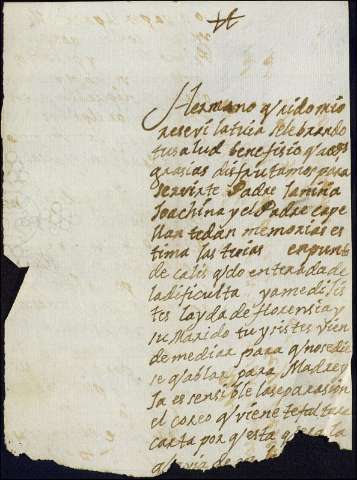 Hermano q/rido mio
reseví la tuia selebrando
tu salud benefisio q/ a Ds
grasias disfrutamos para
servirte Padre la niña
Joachina y el Padre cape
llan te dan memorias es
tima las tuias en punto
de calis q/do enterada de
la dificulta ya me dijis
tes la yda de florensia y
su Marido tu ysistes vien
de mediar para q/ no se die
se q/ ablar para Madre y
Ja es sensible la separasion
el correo q/ viene te faltara
carta por q/ esta